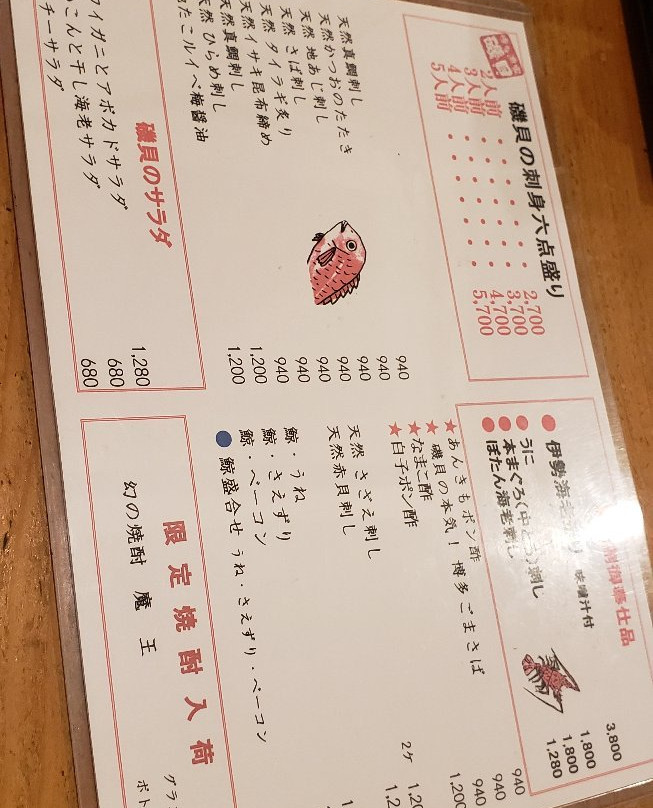 磯貝
磯貝の刺身六点盛り
2人前・・・・・・2,700
3人前・・・・・・3,700
4人前・・・・・・4,700
5人前・・・・・・5,700
天然真鯛刺し 940
天然かつおのたたき 940
天然地あじ刺し 940
天然さば刺し 940
天然 タイラギ炙り 940
天然イサキ昆布締め 940
天然真鯛刺し 940
天然 ひらめ刺し 1,200
たこルイベ梅醤油 1,200
磯貝のサラダ
ワイガニとアボカドサラダ 1,280
こんと干し海老サラダ 680
チーサラダ 680
御奉仕品
●伊勢海老 味噌汁付 3,800
●うに 1,800
●本まぐろ(中とろ)刺し 1,800
●ぼたん海老刺し 1,280
★あんきもポン酢 940
★磯貝の本気!博多ごまさば 940
★なまこ酢 940
★白子ポン酢 1,200
天然 さざえ刺し 2ケ
天然赤貝刺し
鯨・うね
鯨・さえずり
鯨・ベーコン
●鯨盛合せ うね・さえずり・ベーコン
限定焼酎入荷
幻の焼酎 魔王
グラ
ボト